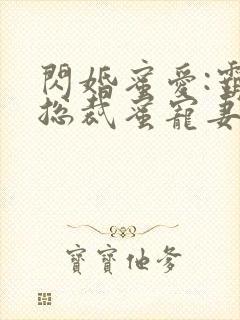 閃婚蜜愛:霸
總裁蜜寵妻
寶寶他爹